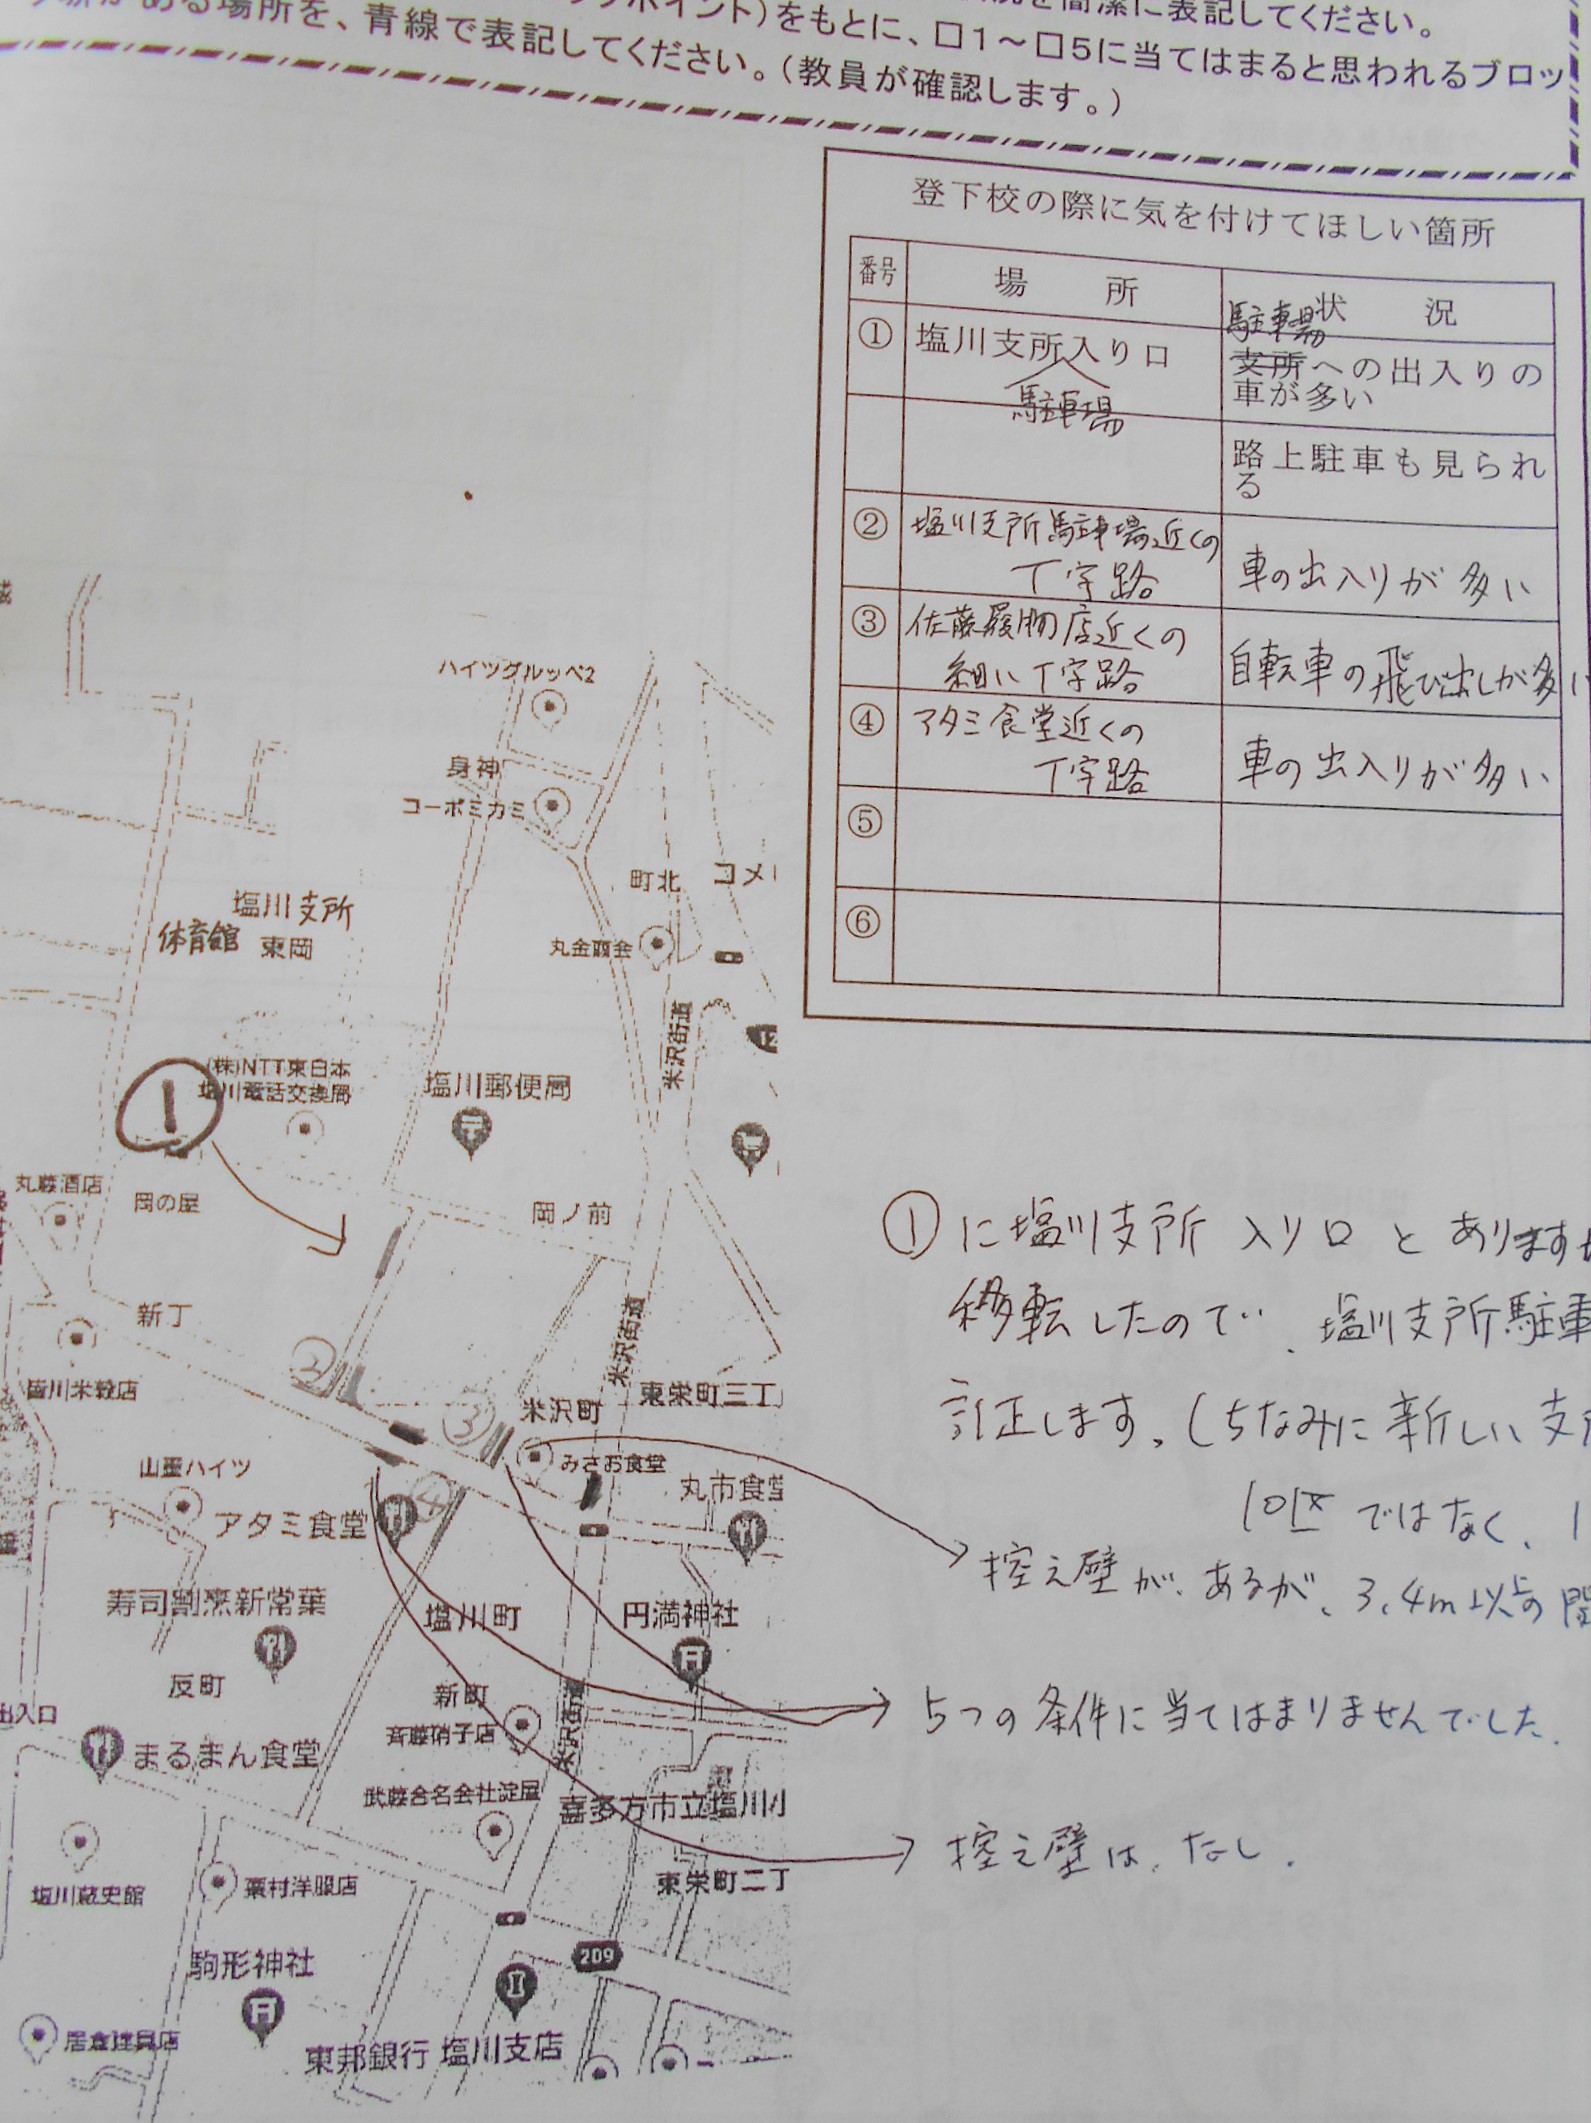 を簡潔に表記してください。
ポイント)をもとに、口1～口5に当てはまると思われるブロッ
がある場所を、青線で表記してください。(教員が確認します。)
登下校の際に気を付けてほしい箇所
番号 場 所 状 況
① 塩川支所入り口 駐車場
駐車場 支所への出入りの
車が多い
路上駐車も見られ
る
② 塩川支所駐車場近くの
丁字路 車の出入りが多い
③ 佐藤履物店近くの
細い丁字路 自転車の飛び出しが多い
④ アタミ食堂近くの
丁字路 車の出入りが多い
⑤
⑥
ハイツグルッペ2
身神
コーポミカミ
町北
コメ
塩川支所
体育館
東岡
丸金
米沢街道
1
(株)NTT東日本
塩川電話交換局
塩川郵便局
丸藤酒店
岡の屋
岡ノ前
新丁
米沢街道
皆川米穀店
②
③
米沢町
東栄町三丁
みさお食堂
丸市食堂
山里ハイツ
④
アタミ食堂
寿司割烹新常葉
塩川町
円満神社
反町
新町
出入口
斉藤硝子店
米沢街道
まるまん食堂
武藤合名会社淀屋
喜多方市立塩川小
東栄町二丁
塩川蔵史館
栗村洋服店
209
駒形神社
居倉建具店
東邦銀行 塩川支店
①に塩川支所 入り口 と あります
移転したので、塩川支所駐車
訂正します。(ちなみに新しい支所
10区 ではなく、1
控え壁が、あるが、3.4m以上の間
5つの条件に当てはまりませんでした。
控え壁は、なし.